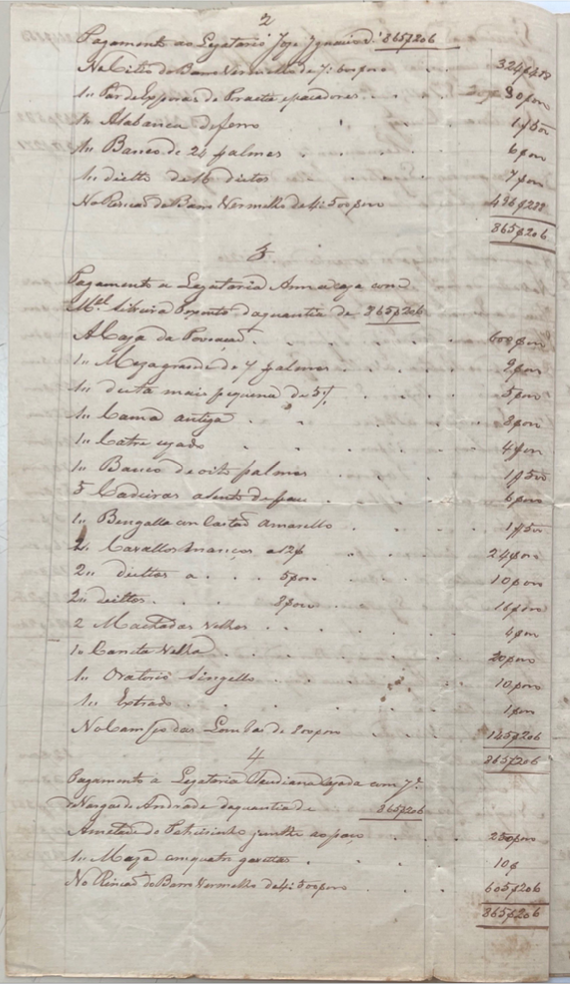 2
Pagamento ao Legatario Joze Ignacio d' 865$206
No Citio do Barro Vermelho de 7: 600$000 . . 324$
1 Par de Esporas de Prata . . . 30$000
1 Alabanca de ferro . . 1$500
1 Banco de 24 palmos . . . 6$000
1 ditto de 16 dittos . . . 7$000
No Rincaõ do Barro Vermelho de 4: 500$000 496$
865$206
3
Pagamento a Legataria Anna caza com
M.el Pinto da quantia de 865$206
A Caza da Povoaçaõ . . . 600$000
1 Meza grande de 7 palmos . . . 2$000
1 ditta mais pequena de 5 . . 5$000
1 Cama antiga . . . 8$000
1 Catre uzado . . . 4$000
1 Banco de oito palmos . . . 1$500
5 Cadeiras asento de pau . . 6$000
1 Bengalla com Castaõ amarello . . 1$500
2 Cavallos mançoz a 12$ . . 24$000
2 dittos a . . 5$000 . . 10$000
2 dittos . . 8$000 . . 16$000
2 Velhas . . . 4$000
1 Carreta Velha . . . 20$000
1 Oratorio Singello . . . 10$000
1 Extrado . . . 1$000
No Campo das de 800$000 . . 145$206
865$206
4
Pagamento a Legataria cazada com
Vargas de Andrade daquantia de 865$206
Ametade do junto ao . . 250$000
1 Meza com quatro gavetas . . 10$
No Rincaõ do Barro Vermelho de 4: 500$000 . . 605$206
865$206